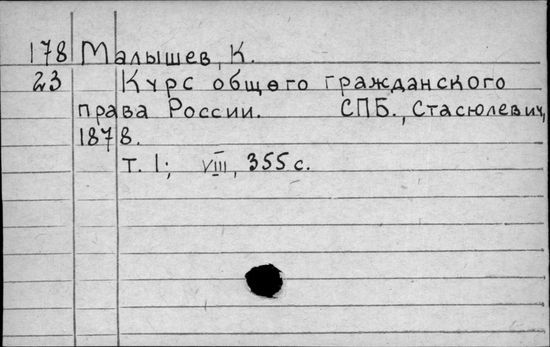 178 Малышев, К.
23 Курс общего гражданского
права России. СПБ., Стасюлевич,
1878.
т. I; VIII, 355 с.